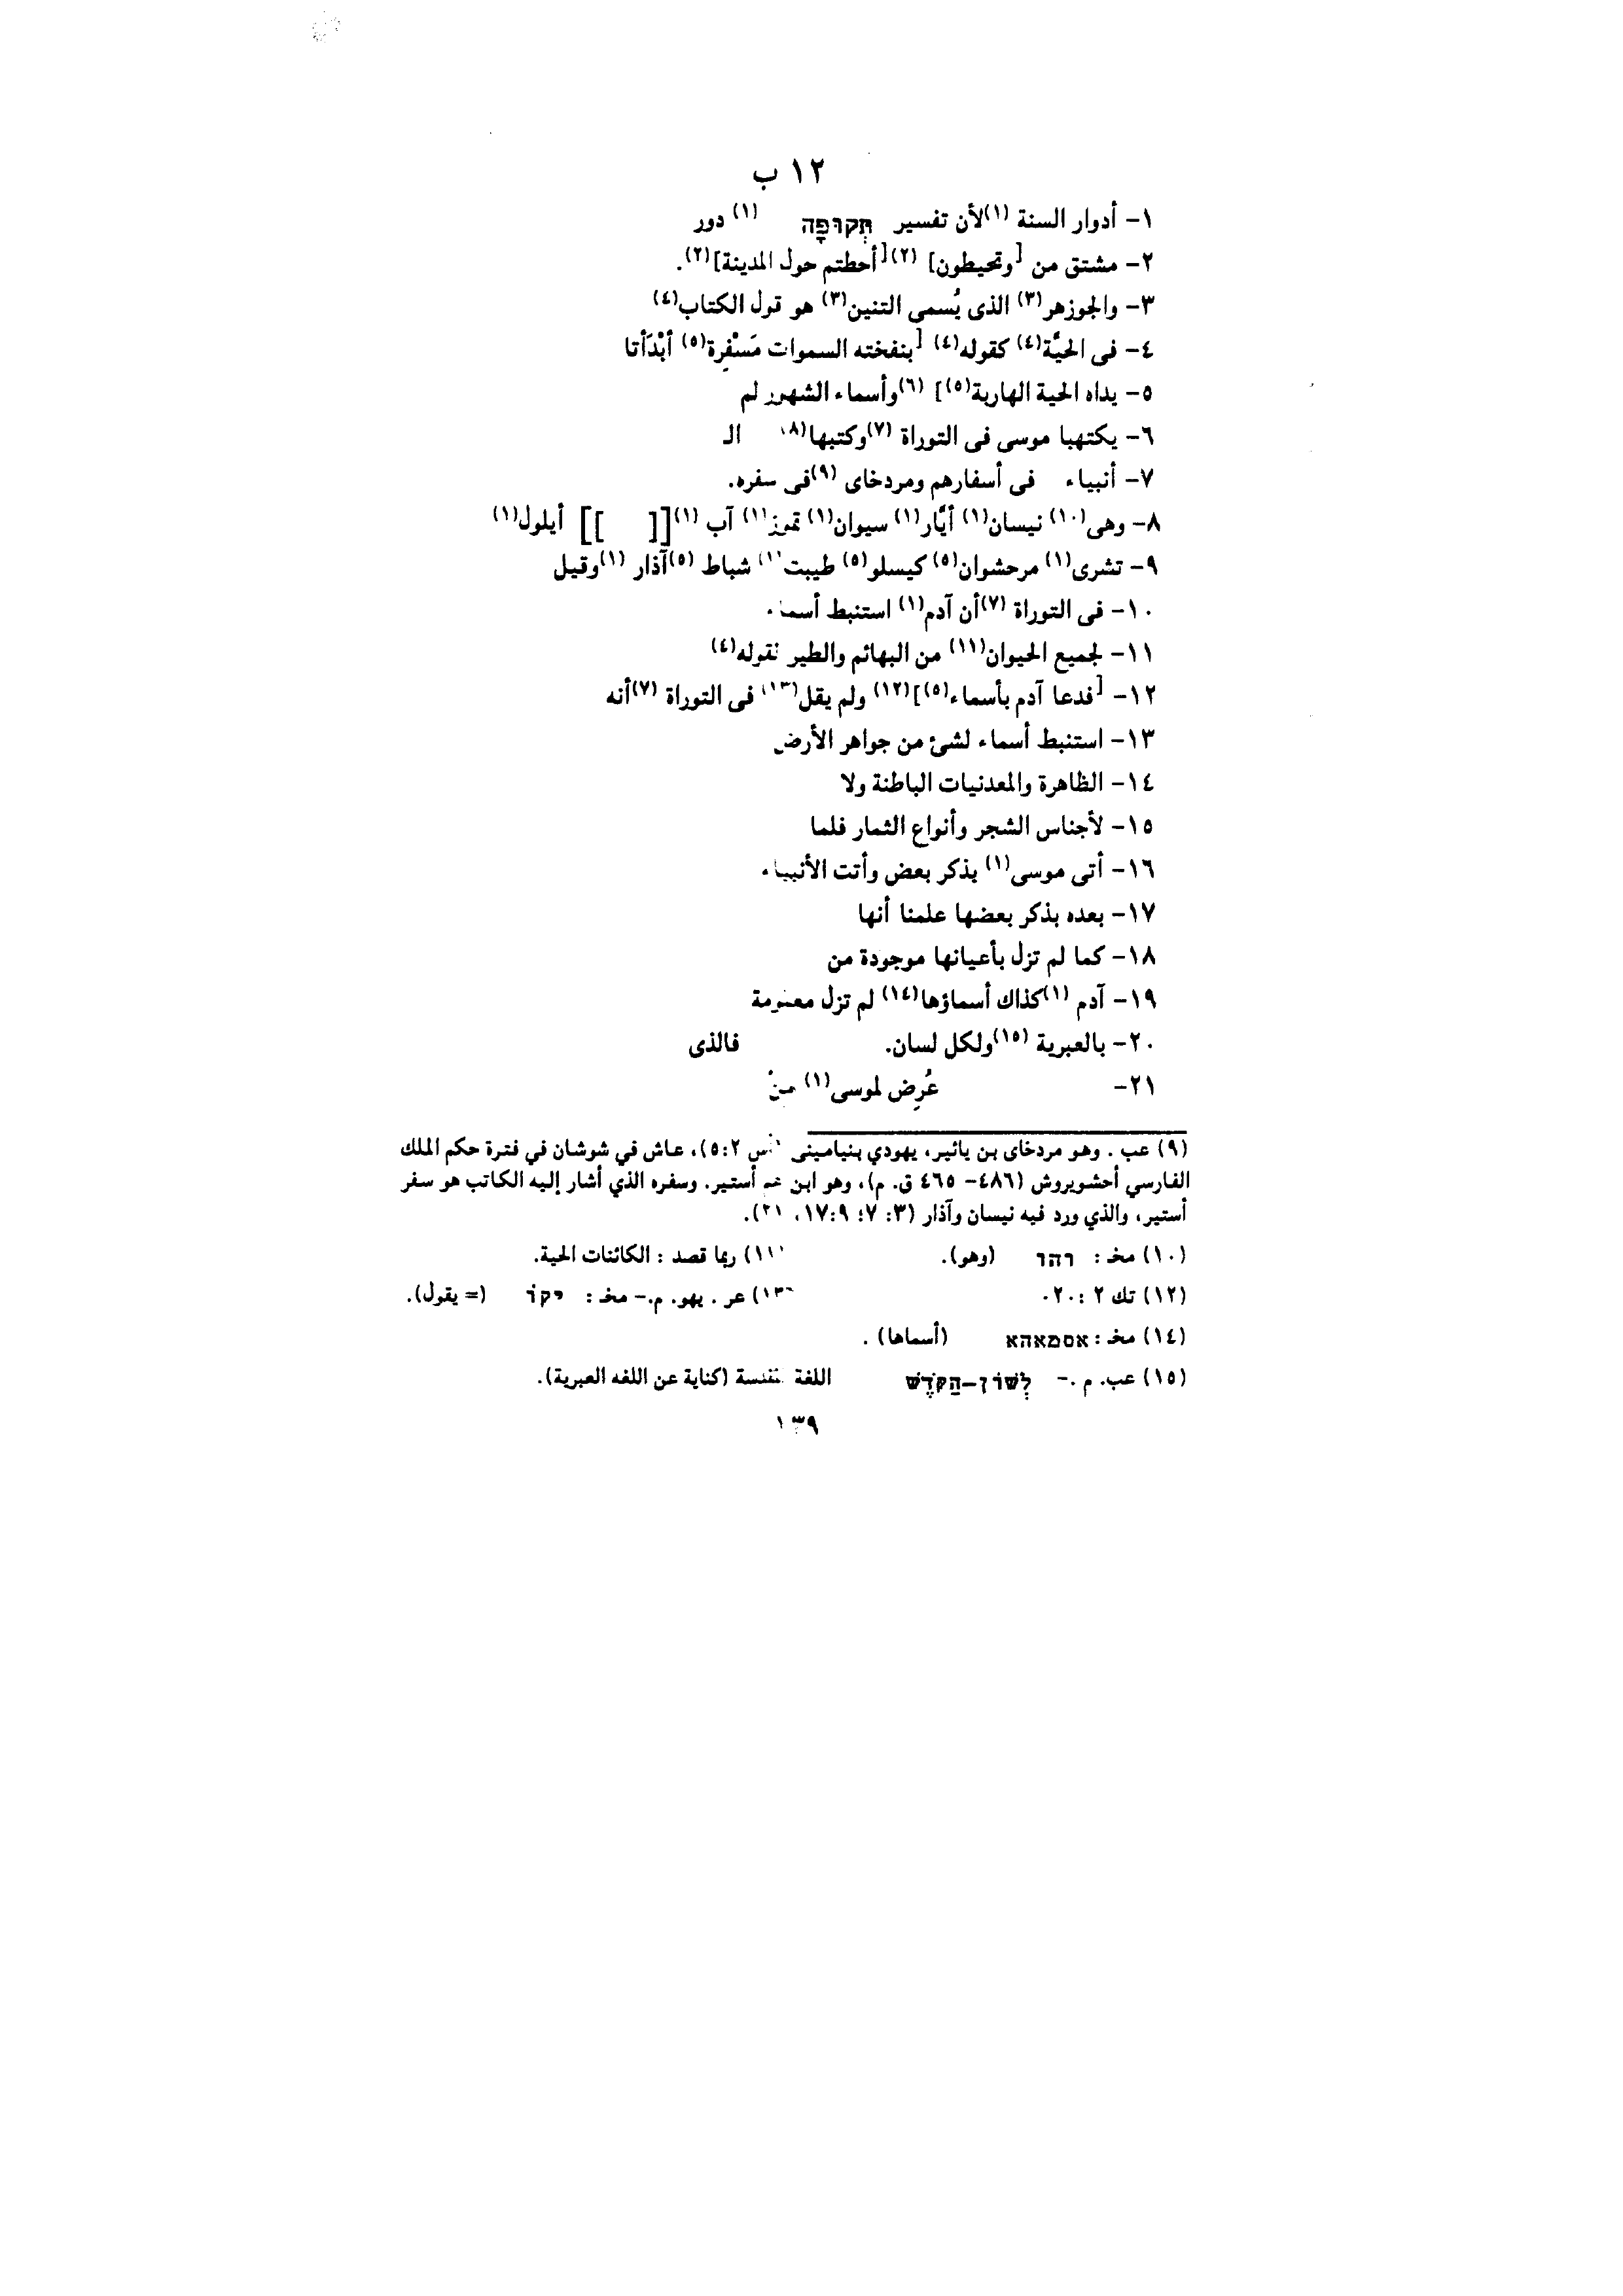 ١٢ ب
١- أدوار السنة (١)لأن تفسير תְּקוּפָה (١) دور
٢- مشتق من [وتحيطون] (٢)[أحطتم حول المدينة](٢).
٣- والجوزهر(٣) الذى يُسمى التنين(٣) هو قول الكتاب(٤)
٤- فى الحيَّة(٤) كقوله(٤) [بنفخته السموات مَسْفِرة(٥) أبْدَأتا
٥- يداه الحية الهاربة(٥)] (٦)وأسماء الشهور لم
٦- يكتهبا موسى فى التوراة (٧)وكتبها(٨) الـ
٧- أنبياء فى أسفارهم ومردخاى (٩)فى سفره.
٨- وهى(١٠) نيسان(١) أيَّار(١) سيوان(١) تموز(١) آب (١)[[ ]] أيلول(١)
٩- تشرى(١) مرحشوان(٥) كيسلو(٥) طيبت(١) شباط (٥)آذار (١)وقيل
١٠- فى التوراة (٧)أن آدم(١) استنبط أسماء
١١- لجميع الحيوان(١١) من البهائم والطير لقوله(٤)
١٢- [فدعا آدم بأسماء(٥)](١٢) ولم يقل(١٣) فى التوراة (٧)أنه
١٣- استنبط أسماء لشئ من جواهر الأرض
١٤- الظاهرة والمعدنيات الباطنة ولا
١٥- لأجناس الشجر وأنواع الثمار فلما
١٦- أتى موسى(١) بذكر بعض وأتت الأنبياء
١٧- بعده بذكر بعضها علمنا أنها
١٨- كما لم تزل بأعيانها موجودة من
١٩- آدم (١)كذاك أسماؤها(١٤) لم تزل معلومة
٢٠- بالعبرية (١٥)ولكل لسان. فالذى
٢١- عُرِض لموسى(١) مِنْ
(٩) عب . وهو مردخاى بن يائير، يهودي بنيامينى (أس ٥:٢)، عاش في شوشان في فترة حكم الملك
الفارسي أحشويروش (٤٨٦- ٤٦٥ ق. م)، وهو ابن عم أستير. وسفره الذي أشار إليه الكاتب هو سفر
أستير، والذي ورد فيه نيسان وآذار (٣: ٧؛ ١٧:٩، ٢١).
(١٠) مخـ : והו (وهو). (١١) ربما قصد : الكائنات الحية.
(١٢) تك ٢ :٢٠. (١٣) عر . يهو. م.- مخـ : יקו̇ (= يقول).
(١٤) مخـ : אסמאהא (أسماها) .
(١٥) عب. م .- לְשׁוֹן-הַקֹּדֶשׁ اللغة المقدسة (كناية عن اللغه العبرية).
١٣٩